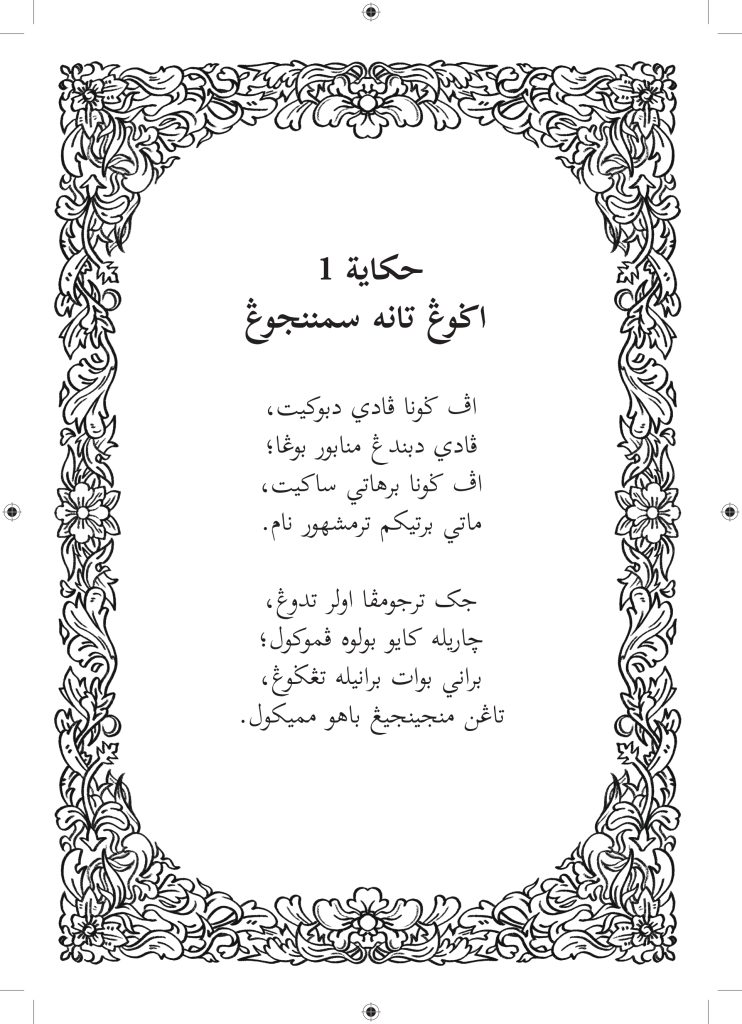 حكاية 1
اݢوڠ تانه سمننجوڠ
اڤ ݢونا ڤادي دبوكيت،
ڤادي دبندڠ منابور بوڠا؛
اڤ ݢونا برهاتي ساكيت،
ماتي برتيكم ترمشهور نام.
جک ترجومڤا اولر تدوڠ،
چاريله كايو بولوه ڤموكول؛
براني بوات برانيله تڠݢوڠ،
تاڠن منجينجيڠ باهو مميكول.